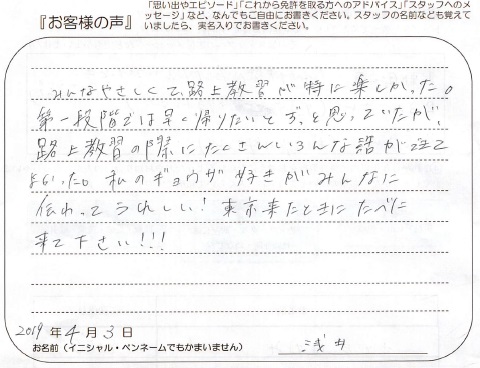 「思い出やエピソード」「これから免許を取る方へのアドバイス」「スタッフへのメ
『お客様の声』 ッセージ」など、なんでもご自由にお書きください。スタッフの名前なども覚えて
いましたら、実名入りでお書きください。
みんなやさしくて路上教習が特に楽しかった。
第一段階では早く帰りたいとずっと思っていたが、
路上教習の際にたくさんいろんな話ができて
よかった。私のギョウザ好きがみんなに
伝わってうれしい!東京来たときにたべに
来て下さい!!!
2019年4月3日
お名前(イニシャル・ペンネームでもかまいません) 浅井